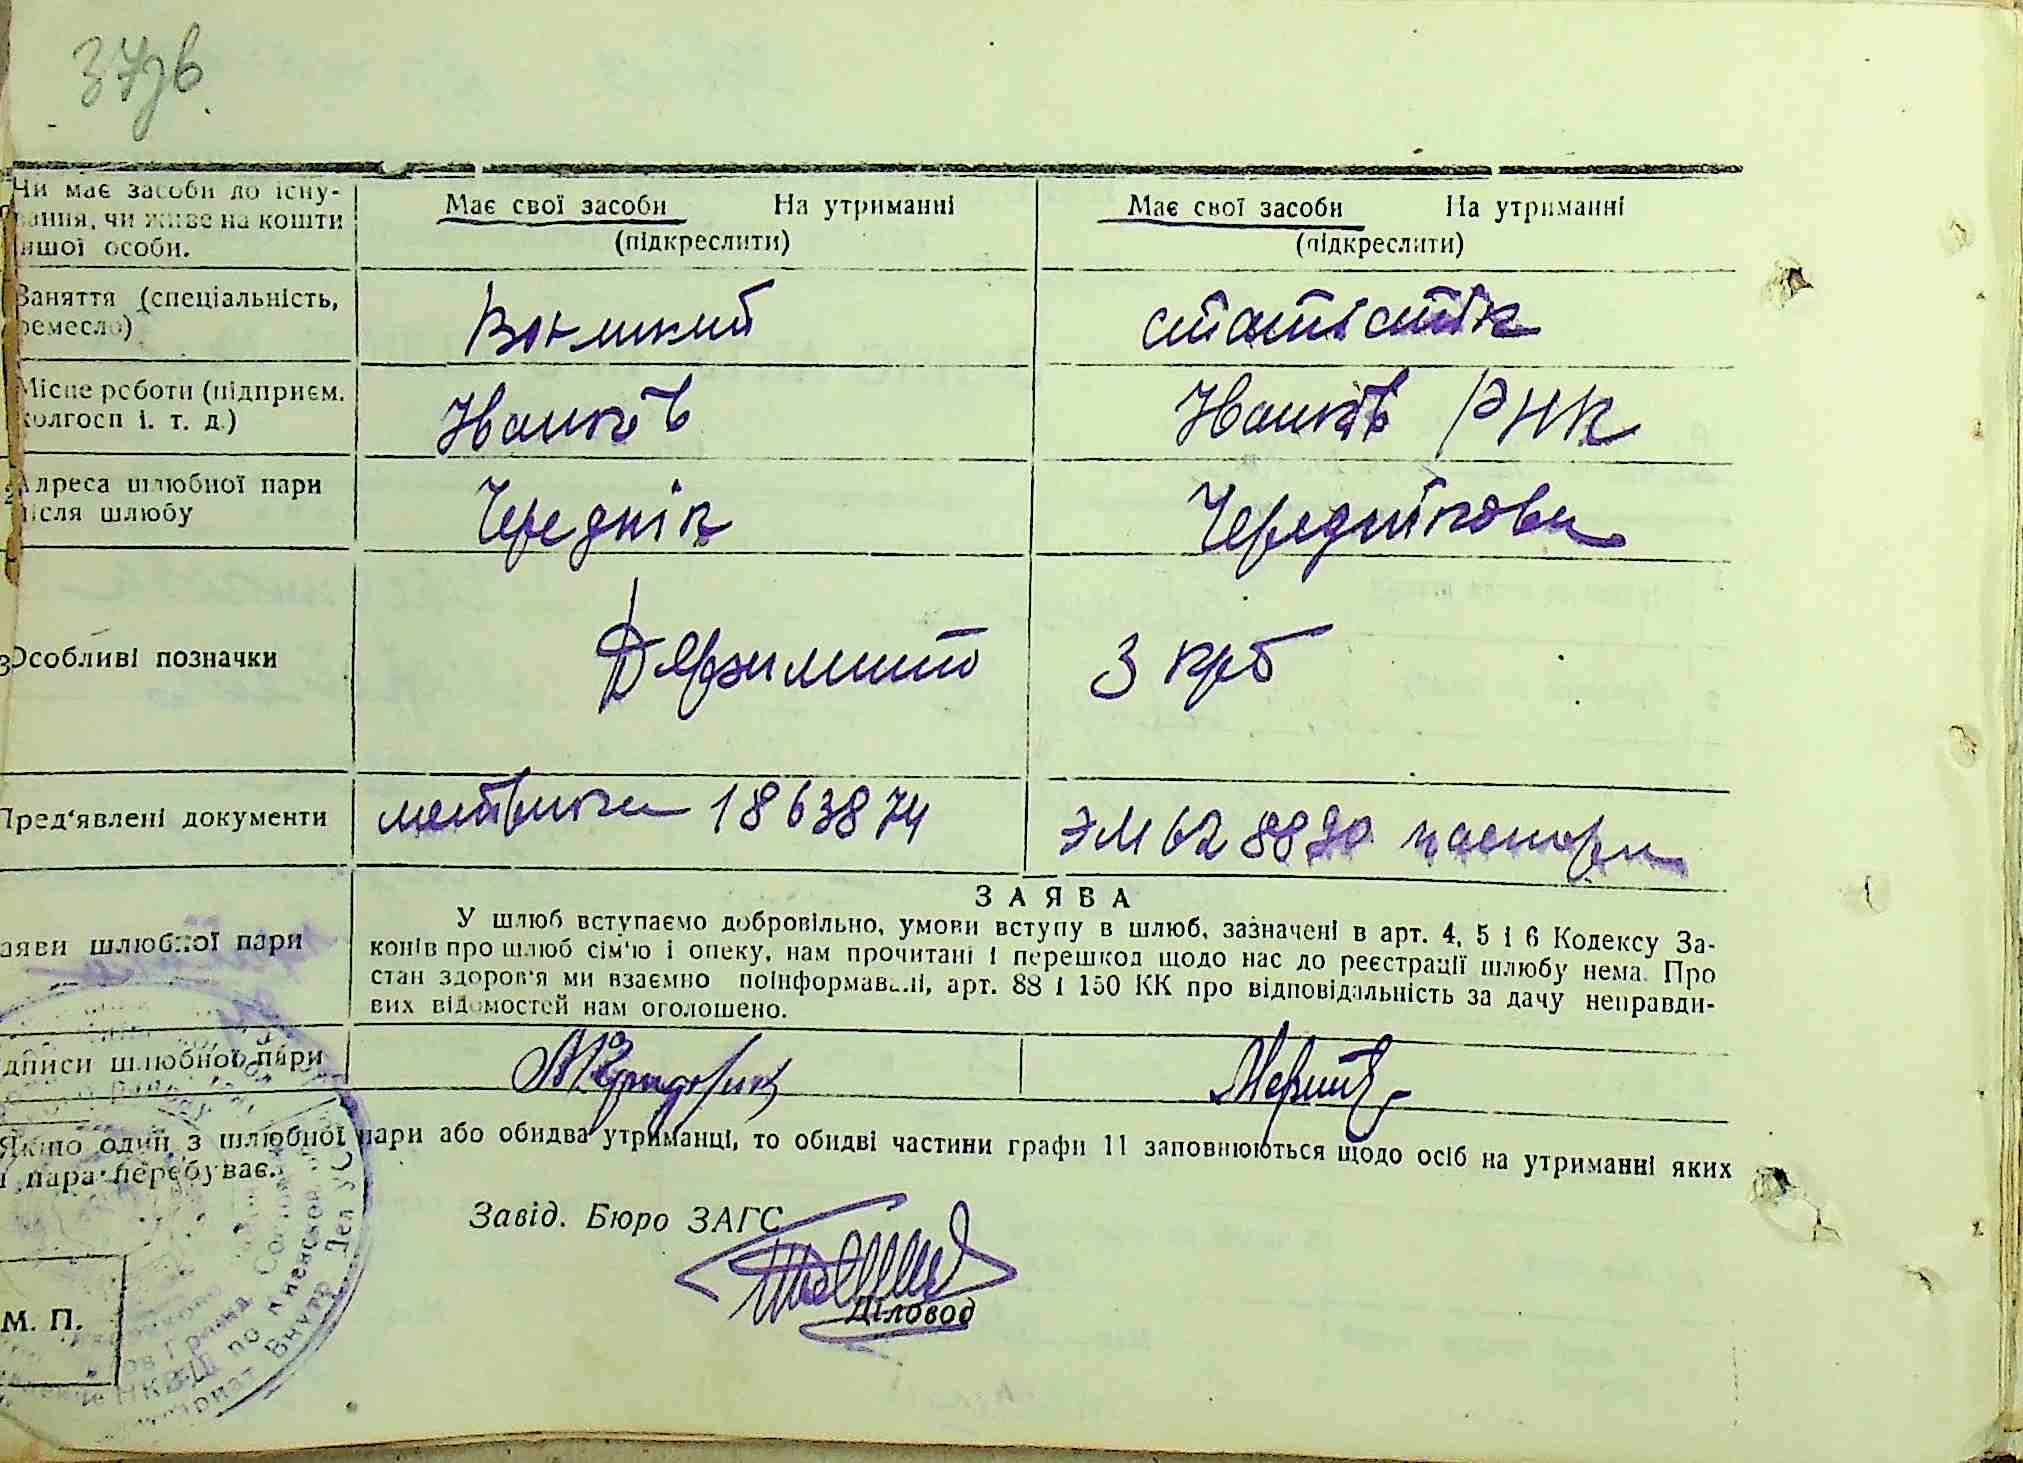 37зв
Чи має засоби до існу-
вання, чи живе на кошти
іншої особи.
Має свої засоби На утриманні
(підкреслити)
Має свої засоби На утриманні
(підкреслити)
Заняття (спеціальність,
ремесло)
статістік
Місце роботи (підприєм.
колгосп і. т. д.)
Іванків
Іванків РНК
Адреса шлюбної пари
після шлюбу
Череднік
Череднікова
Особливі позначки
Держмито 3 крб
Пред'явлені документи
метрика 1863874
ЭМ 628820 паспорт
Заяви шлюбної пари
ЗАЯВА
У шлюб вступаємо добровільно, умови вступу в шлюб, зазначені в арт. 4, 5 і 6 Кодексу За-
конів про шлюб сім'ю і опеку, нам прочитані і перешкод щодо нас до реєстрації шлюбу нема. Про
стан здоров'я ми взаємно поінформавалі, арт. 88 і 150 КК про відповідальність за дачу неправди-
вих відомостей нам оголошено.
Підписи шлюбної пари
Якщо один з шлюбної пари або обидва утриманці, то обидві частини графи 11 заповнюються щодо осіб на утриманні яких
пара перебуває.
Завід. Бюро ЗАГС
Діловод
М. П.